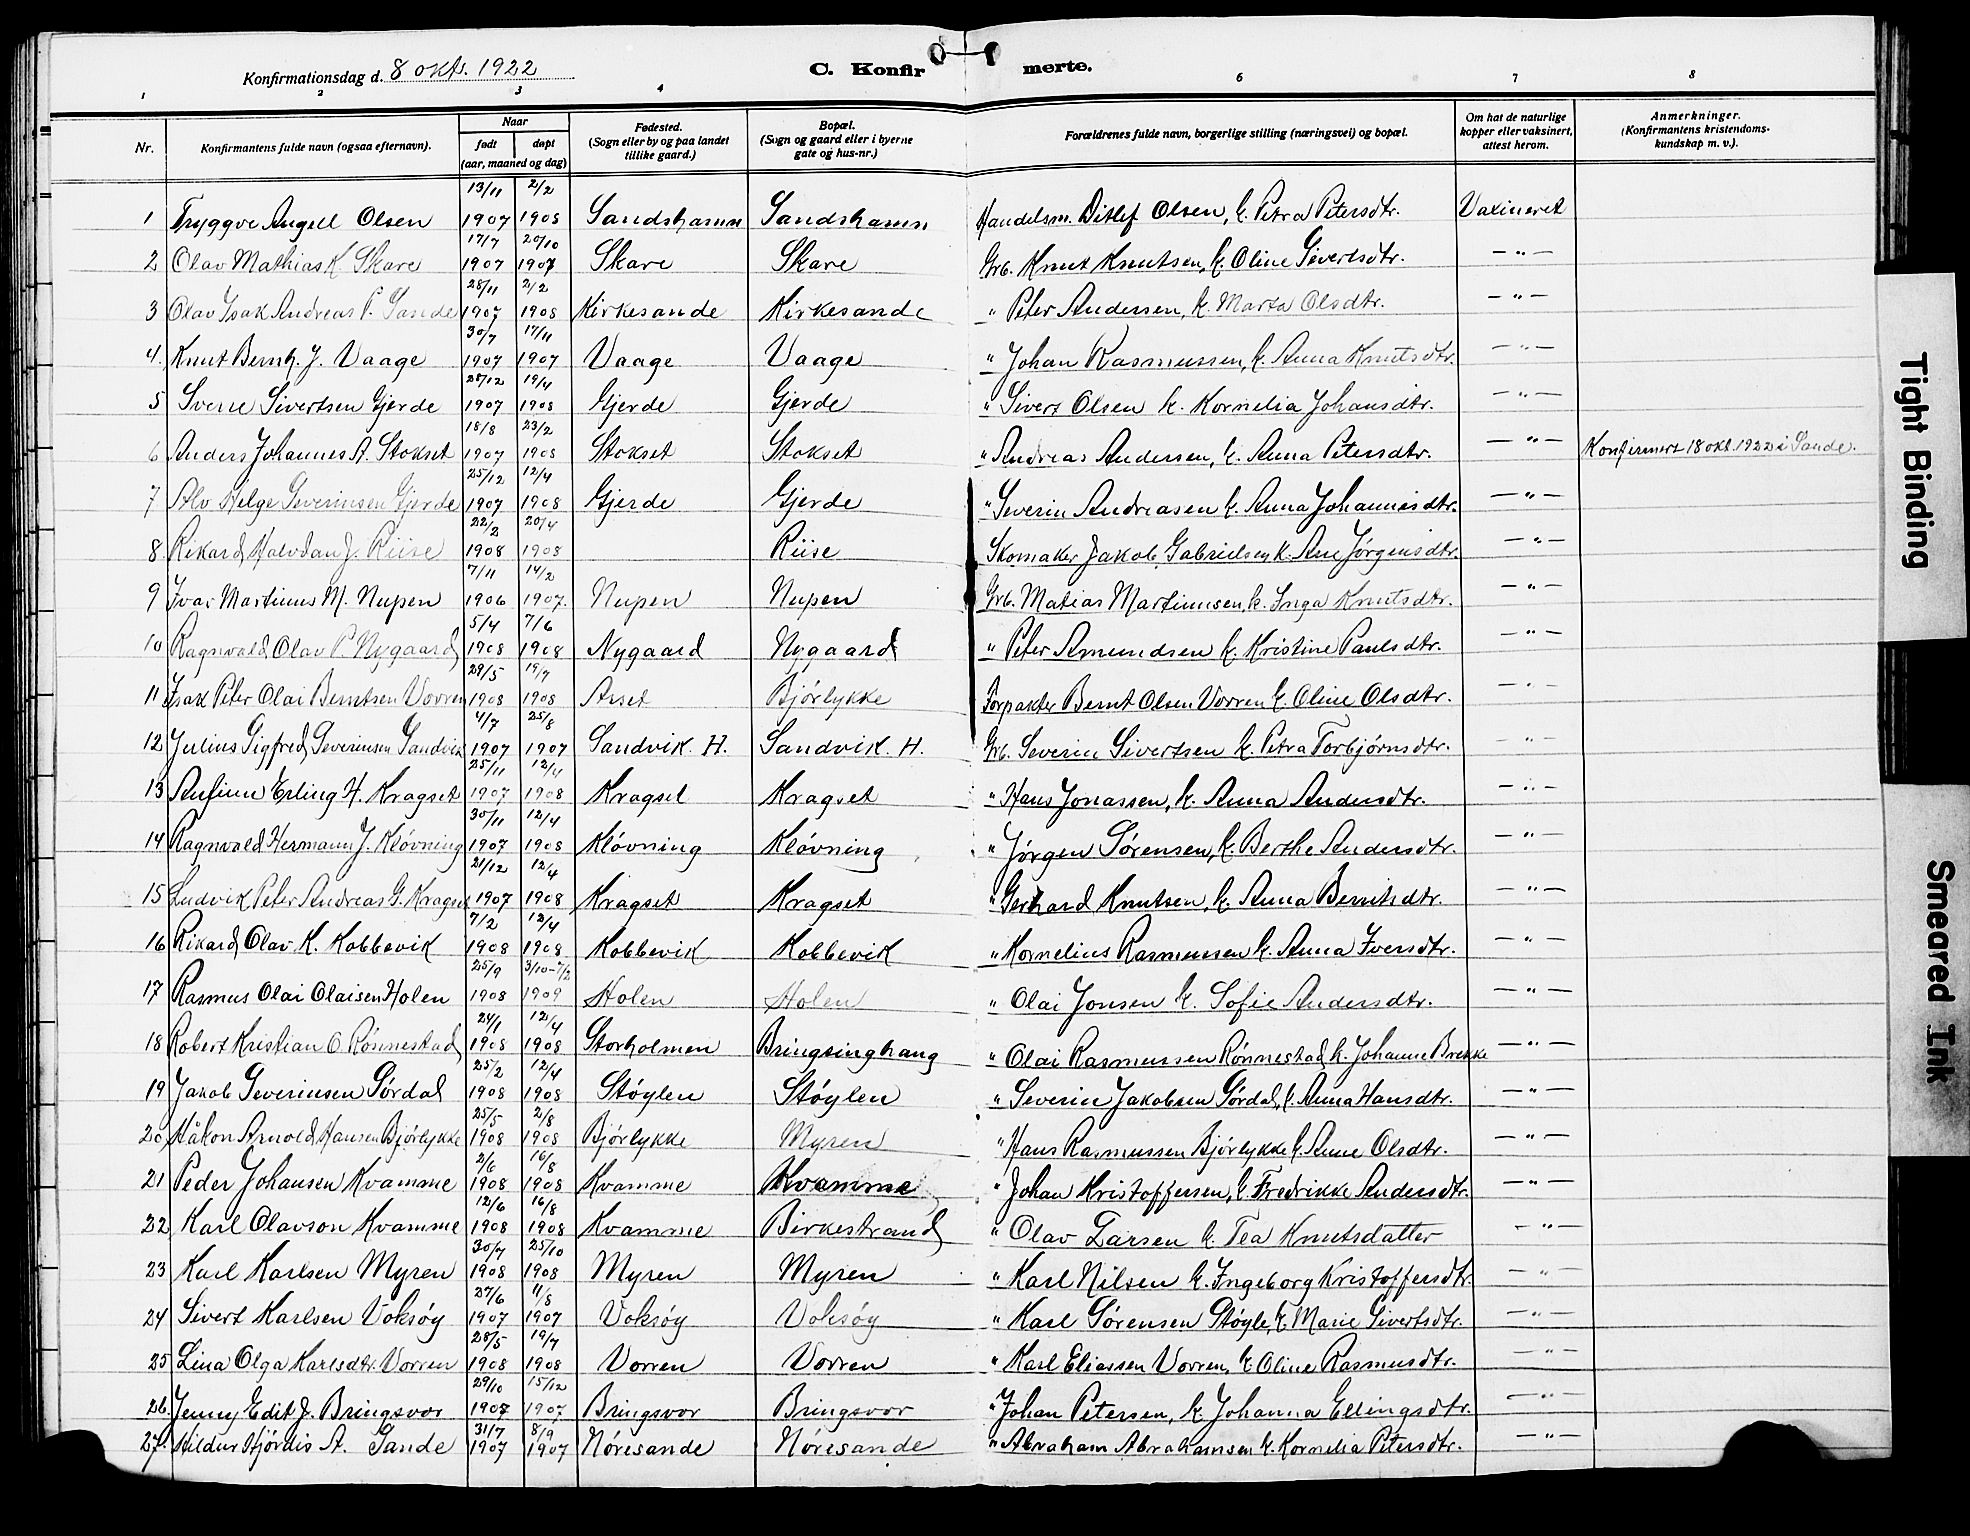 Konfirmationsdag d. 8 okt. 1922
C. Konfirmerte.
1 2 3 4 6 7 8
Nr. Konfirmantens fulde navn (ogsaa efternavn). Naar født døpt (aar, maaned og dag) Fødested. (Sogn eller by og paa landet tillike gaard.) Bopæl. (Sogn og gaard eller i byerne gate og hus-nr.) Forældrenes fulde navn, borgerlige stilling (næringsvei) og bopæl. Om hat de naturlige kopper eller vaksinert, attest herom. Anmerkninger. (Konfirmantens kristendomskundskap m. v.).
1 Tryggve Angell Olsen 13/11 1907 2/2 1908 Sandshamn Sandshamn Handelsm. Ditlef Olsen, k. Petra Petersdtr. Vaxineret
2 Olav Mathias K. Skare 17/7 1907 20/10 1907 Skare Skare Grb. Knut Knutsen, k. Oline Sivertsdtr. — " —
3 Olav Isak Andreas P. Sande 28/11 1907 2/2 1908 Kirkesande Kirkesande " Peter Andersen, k. Marta Olsdtr. — " —
4. Knut Bernh. J. Vaage 30/7 1907 17/11 1907 Vaage Vaage " Johan Rasmussen, k. Anna Knutsdtr. — " —
5 Sverre Sivertsen Gjerde 28/12 1907 19/4 1908 Gjerde Gjerde " Sivert Olsen k. Kornelia Johansdtr. — " —
6 Anders Johannes A. Stokset 18/8 1907 23/2 1908 Stokset Stokset " Andreas Andersen, k. Anna Petersdtr. — " — Konfirmert 18 okt. 1922 i Sande.
7 Alv Helge Severinsen Gjerde 25/12 1907 12/4 1908 Gjerde Gjerde " Severin Andreasen k. Anna Johannesdtr. — " —
8. Rikard Halvdan J. Riise 22/2 1908 20/4 1908 Riise Skomaker Jakob Gabrielsen k. Ane Jørgensdtr. — " —
9 Ivar Martinus M. Nupen 7/11 1906 14/2 1907. Nupen Nupen Grb. Matias Martinusen, k. Inga Knutsdtr. — " —
10 Ragnvald Olav P. Nygaard 5/4 1908 7/6 1908 Nygaard Nygaard " Peter Amundsen k. Kristine Paulsdtr. — " —
11 Isak Peter Olai Berntsen Vorren 29/5 1908 19/7 1908 Aaset Bjørlykke Forpakter Bernt Olsen Vorren k. Oline Olsdtr. — " —
12 Julius Sigfred Severinsen Sandvik 4/7 1907 25/8 1907 Sandvik. H. Sandvik. H. Grb. Severin Sivertsen k. Petra Torbjørnsdtr. — " —
13 Anfinn Erling H. Kragset 25/11 1907 12/4 1908 Kragset Kragset " Hans Jonassen, k. Anna Andersdtr. — " —
14 Ragnvald Hermann J. Kløvning 30/11 1907 12/4 1908 Kløvning Kløvning " Jørgen Sørensen, k. Berthe Andersdtr. — " —
15 Ludvik Peter Andreas G. Kragset 21/12 1907 12/4 1908 Kragset Kragset " Gerhard Knutsen, k. Anna Berntsdtr. — " —
16 Rikard Olav K. Kobbevik 7/2 1908 12/4 1908 Kobbevik Kobbevik " Kornelius Rasmussen k. Anna Iversdtr. — " —
17 Rasmus Olai Olaisen Holen 25/9 1908 3/10-7/2 1909 Holen Holen " Olai Jonsen k. Sofie Andersdtr. — " —
18 Robert Kristian O. Rønnestad 24/1 1908 12/4 1908 Storholmen Bringsinghaug " Olai Rasmussen Rønnestad k. Johanne Brekke — " —
19 Jakob Severinsen Sørdal 25/2 1908 12/4 1908 Støylen Støylen " Severin Jakobsen Sørdal, k. Anna Hansdtr. — " —
20, Håkon Arnold Hansen Bjørlykke 25/5 1908 2/8 1908 Bjørlykke Myren " Hans Rasmussen Bjørlykke k. Anne Olsdtr. — " —
21 Peder Johansen Kvamme 2/6 1908 16/8 1908 Kvamme Kvamme " Johan Kristoffersen, k. Fredrikke Andersdtr. — " —
22 Karl Olavson Kvamme 12/6 1908 16/8 1908 Kvamme Birkestrand " Olav Larsen k. Tea Knutsdatter — " —
23 Karl Karlsen Myren 30/7 1908 25/10 1908 Myren Myren " Karl Nilsen k. Ingeborg Kristoffersdtr. — " —
24 Sivert Karlsen Voksøy 27/6 1907 11/8 1907 Voksøy Voksøy " Karl Sørensen Støyle, k. Marie Sivertsdtr. — " —
25 Lina Olga Karlsdtr. Vorren 28/5 1908 19/7 1908 Vorren Vorren " Karl Eliassen Vorren, k. Oline Rasmusdtr. — " —
26. Jenny Edit J. Bringsvor 29/10 1907 15/12 1907 Bringsvor Bringsvor " Johan Petersen, k. Johanna Ellingsdtr. — " —
27. Hildur Hjørdis A. Sande 31/7 1907 8/9 1907 Nøresande Nøresande " Abraham Abrahamsen k. Kornelia Petersdtr. — " —
Tight Binding
Smeared Ink